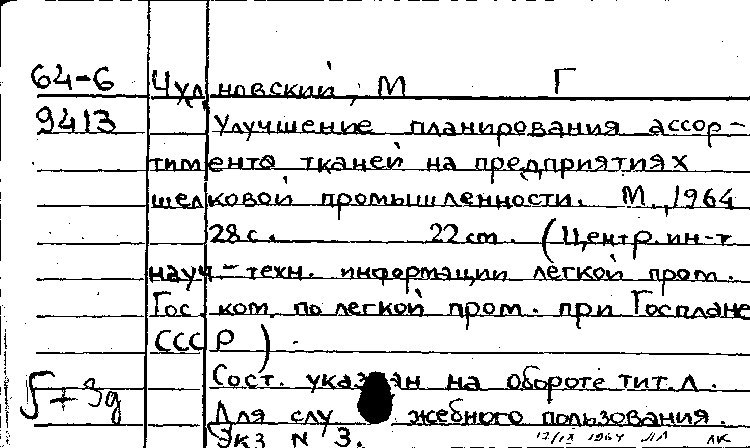 64-6 Чулновский, М Г
9413 Улучшение планирования ассор-
тимента тканей на предприятиях
шелковой промышленности. М., 1964
28с. 22 cm. (Центр. ин-т
науч-техн. информации легкой пром.
Гос. ком. по легкой пром. при Госплане
СССР)
Сост. указан на обороте тит. л.
Для служебного пользования.
Экз N 3.